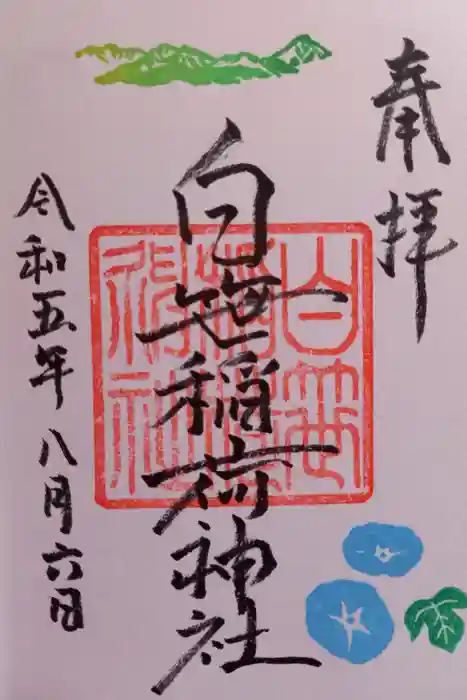 奉拝
白笹稲荷神社
白笹
稲荷
神社
令和五年八月六日